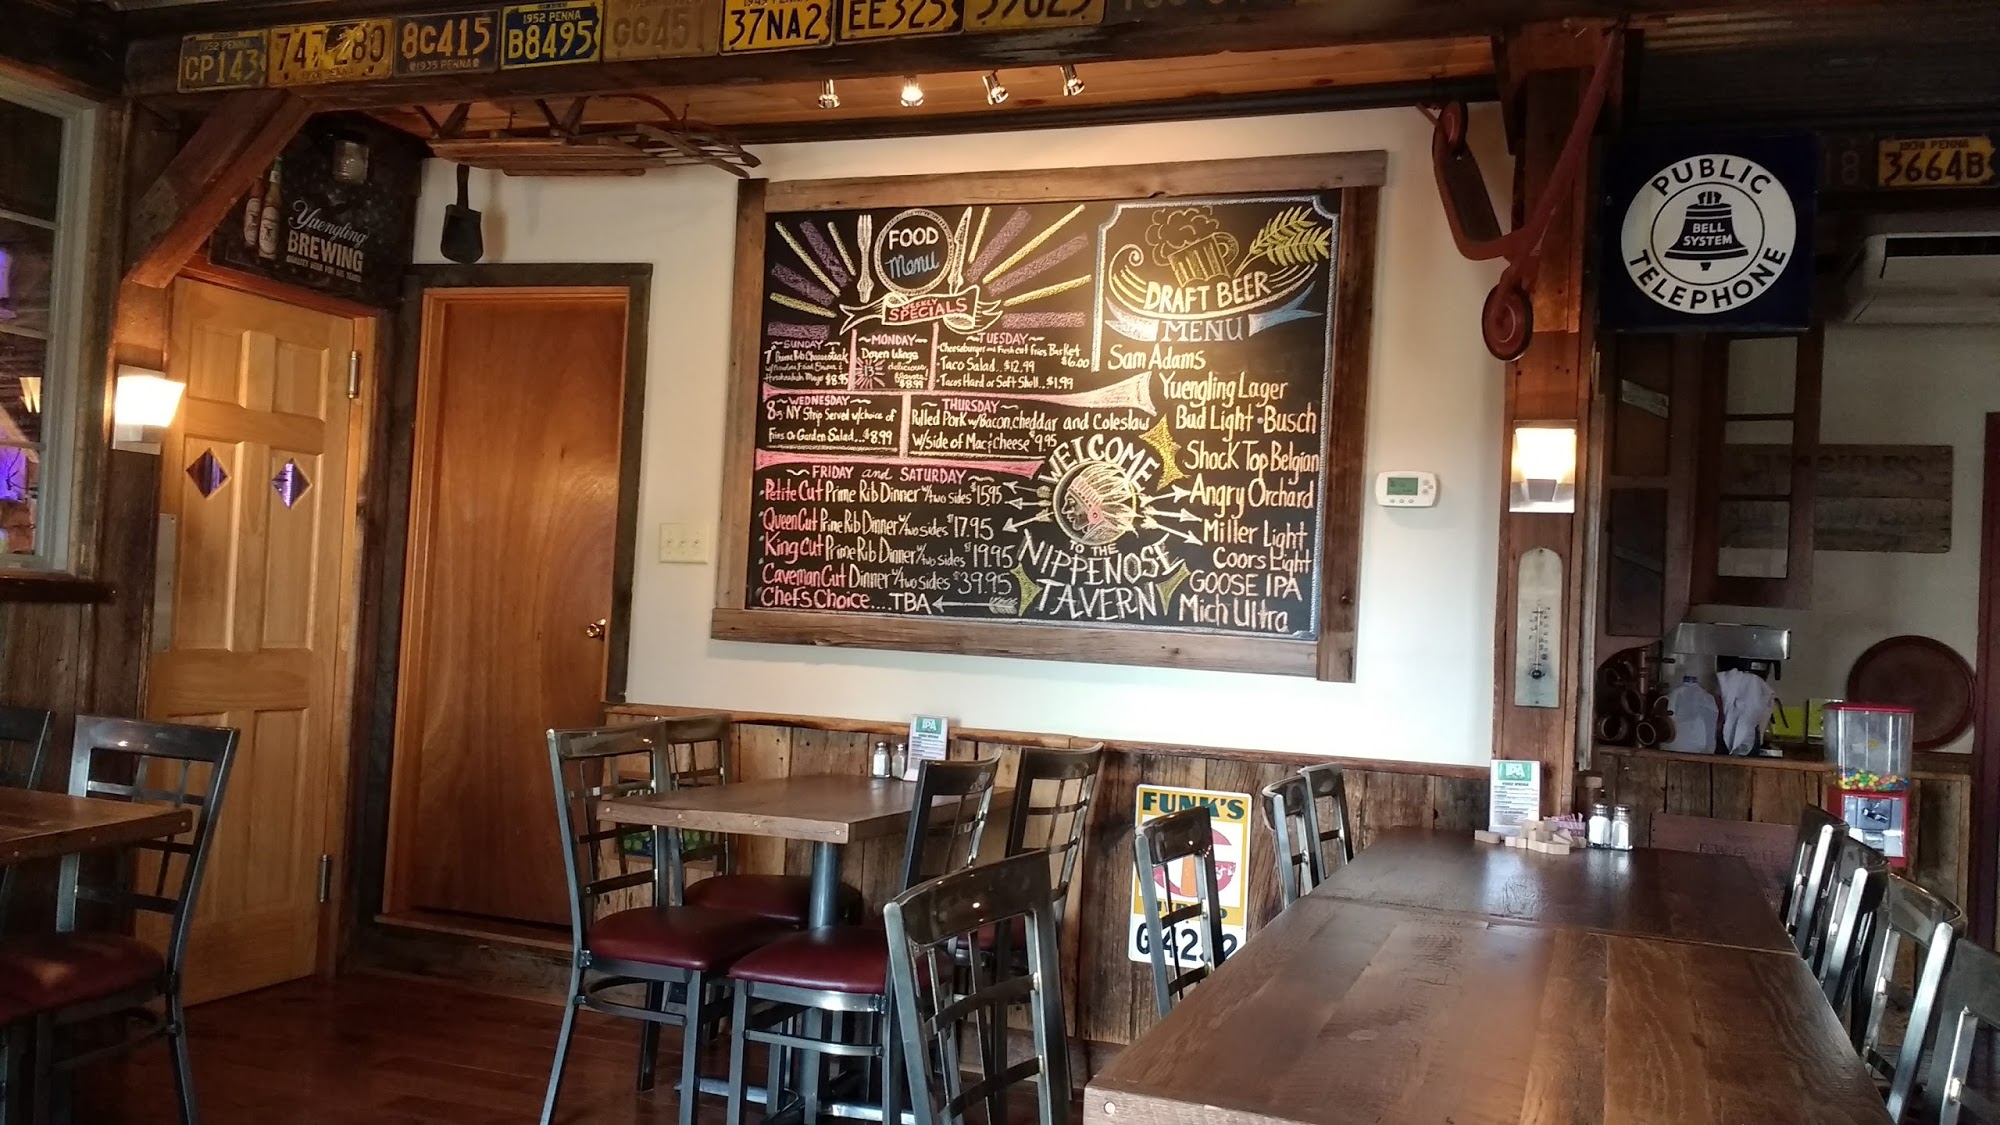 1952 PENNA
CP143
747 280
8C415
1935 PENNA
1952 PENNA
B8495
GG451
37NA2
EE325
39629
1934 PENNA
3664B
Yuengling
BREWING
PUBLIC
BELL
SYSTEM
TELEPHONE
FOOD
Menu
WEEKLY
SPECIALS
SUNDAY
7" Prime Rib Cheesesteak
Horseradish Mayo $8.95
MONDAY
Dozen Wings
13
delicious
flavors
$8.99
TUESDAY
Cheeseburger and Fresh cut fries Basket
$6.00
Taco Salad.. $12.99
Tacos Hard or Soft Shell... $1.99
WEDNESDAY
8oz NY Strip Served w/choice of
Fries Or Garden Salad... $8.99
THURSDAY
Pulled Pork w/Bacon, cheddar and Coleslaw
w/side of Mac & cheese $9.95
FRIDAY and SATURDAY
Petite Cut Prime Rib Dinner w/two sides $15.95
Queen Cut Prime Rib Dinner w/two sides $17.95
King Cut Prime Rib Dinner w/two sides $19.95
Caveman Cut Dinner w/two sides $39.95
Chefs Choice....TBA
WELCOME
TO THE
NIPPENOSE
TAVERN
DRAFT BEER
MENU
Sam Adams
Yuengling Lager
Bud Light • Busch
Shock Top Belgian
Angry Orchard
Miller Light
Coors Light
GOOSE IPA
Mich Ultra
IPA
IPA
FUNK'S
G